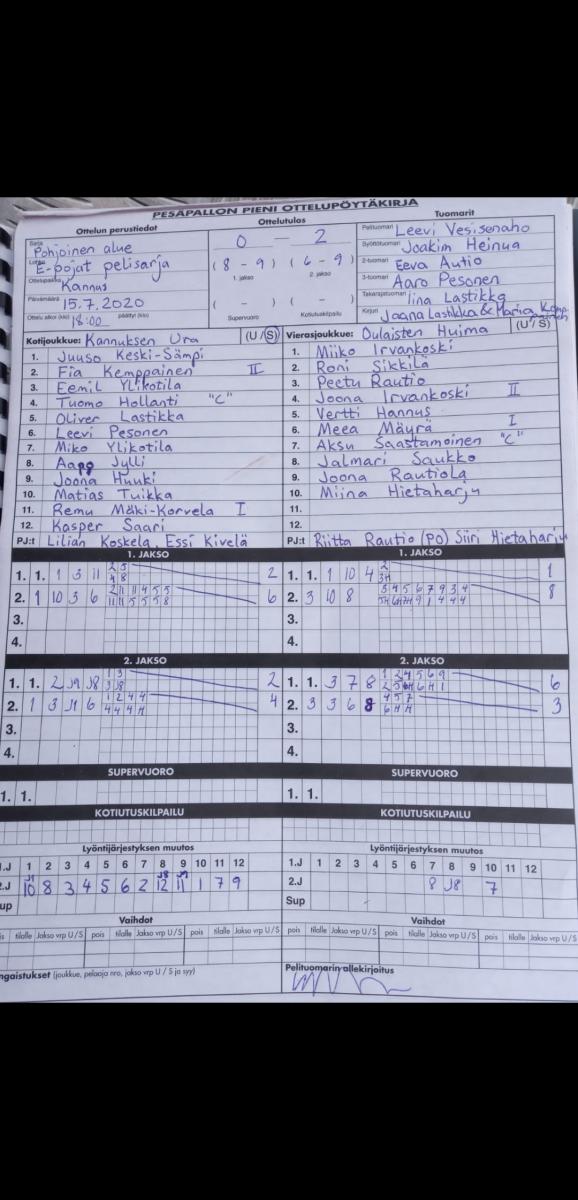 PESÄPALLON PIENI OTTELUPÖYTÄKIRJA
Ottelun perustiedot
Sarja Pohjoinen alue
Lohko E-pojat pelisarja
Ottelupaikka Kannus
Päivämäärä 15.7.2020
Ottelu alkoi (klo) 18:00 päättyi (klo)
Ottelutulos
0 - 2
( 8 - 9 ) ( 6 - 9 )
1. jakso 2. jakso
( - ) ( - )
Supervuoro Kotiutuskilpailu
Tuomarit
Pelituomari Leevi Vesisenaho
Syöttötuomari Joakim Heinua
2-tuomari Eeva Autio
3-tuomari Aaro Pesonen
Takarajatuomari Iina Lastikka
Kirjuri Jaana Lastikka & Maria
Kotijoukkue: Kannuksen Ura (U/S)
1. Juuso Keski-Sämpi
2. Fia Kemppainen II
3. Eemil Ylikotila
4. Tuomo Hollanti "C"
5. Oliver Lastikka
6. Leevi Pesonen
7. Miko Ylikotila
8. Aapo Jylli
9. Joona Huuki
10. Matias Tuikka
11. Remu Mäki-Korvela I
12. Kasper Saari
PJ:t Lilian Koskela, Essi Kivelä
Vierasjoukkue: Oulaisten Huima (U/S)
1. Miiko Irvankoski
2. Roni Sikkilä
3. Peetu Rautio
4. Joona Irvankoski II
5. Vertti Hannus
6. Meea Mäyrä I
7. Aksu Saastamoinen "C"
8. Jalmari Saukko
9. Joona Rautiola
10. Miina Hietaharju
11.
12.
PJ:t Riitta Rautio (PO) Siiri Hietaharju
1. JAKSO
1. 1. 1 3 11 2 5 2
4 8
2. 1 10 3 6 2 11 11 4 5 5 6
11 11 5 5 5 8
3.
4.
1. JAKSO
1. 1. 1 10 4 2 1
2. 3 10 8 3 4 5 6 7 9 3 4 8
3.
4.
2. JAKSO
1. 1. 2 J9 J8 1 3 2
3 J8
2. 1 3 J1 6 1 2 4 4 4
4 4 4
3.
4.
2. JAKSO
1. 1. 3 7 8 1 2 4 5 6 9 6
2. 3 3 6 8 4 5 7 3
3.
4.
SUPERVUORO
1. 1.
SUPERVUORO
1. 1.
KOTIUTUSKILPAILU
KOTIUTUSKILPAILU
Lyöntijärjestyksen muutos
1.J 1 2 3 4 5 6 7 8 9 10 11 12
J1 J8 J9
2.J 10 8 3 4 5 6 2 12 11 1 7 9
Sup
Lyöntijärjestyksen muutos
1.J 1 2 3 4 5 6 7 8 9 10 11 12
2.J 8 J8 7
Sup
Vaihdot
pois tilalle Jakso vrp U/S pois tilalle Jakso vrp U/S
Vaihdot
pois tilalle Jakso vrp U/S pois tilalle Jakso vrp U/S
ngaistukset (joukkue, pelaaja nro, jakso vrp U / S ja syy)
Pelituomarin allekirjoitus